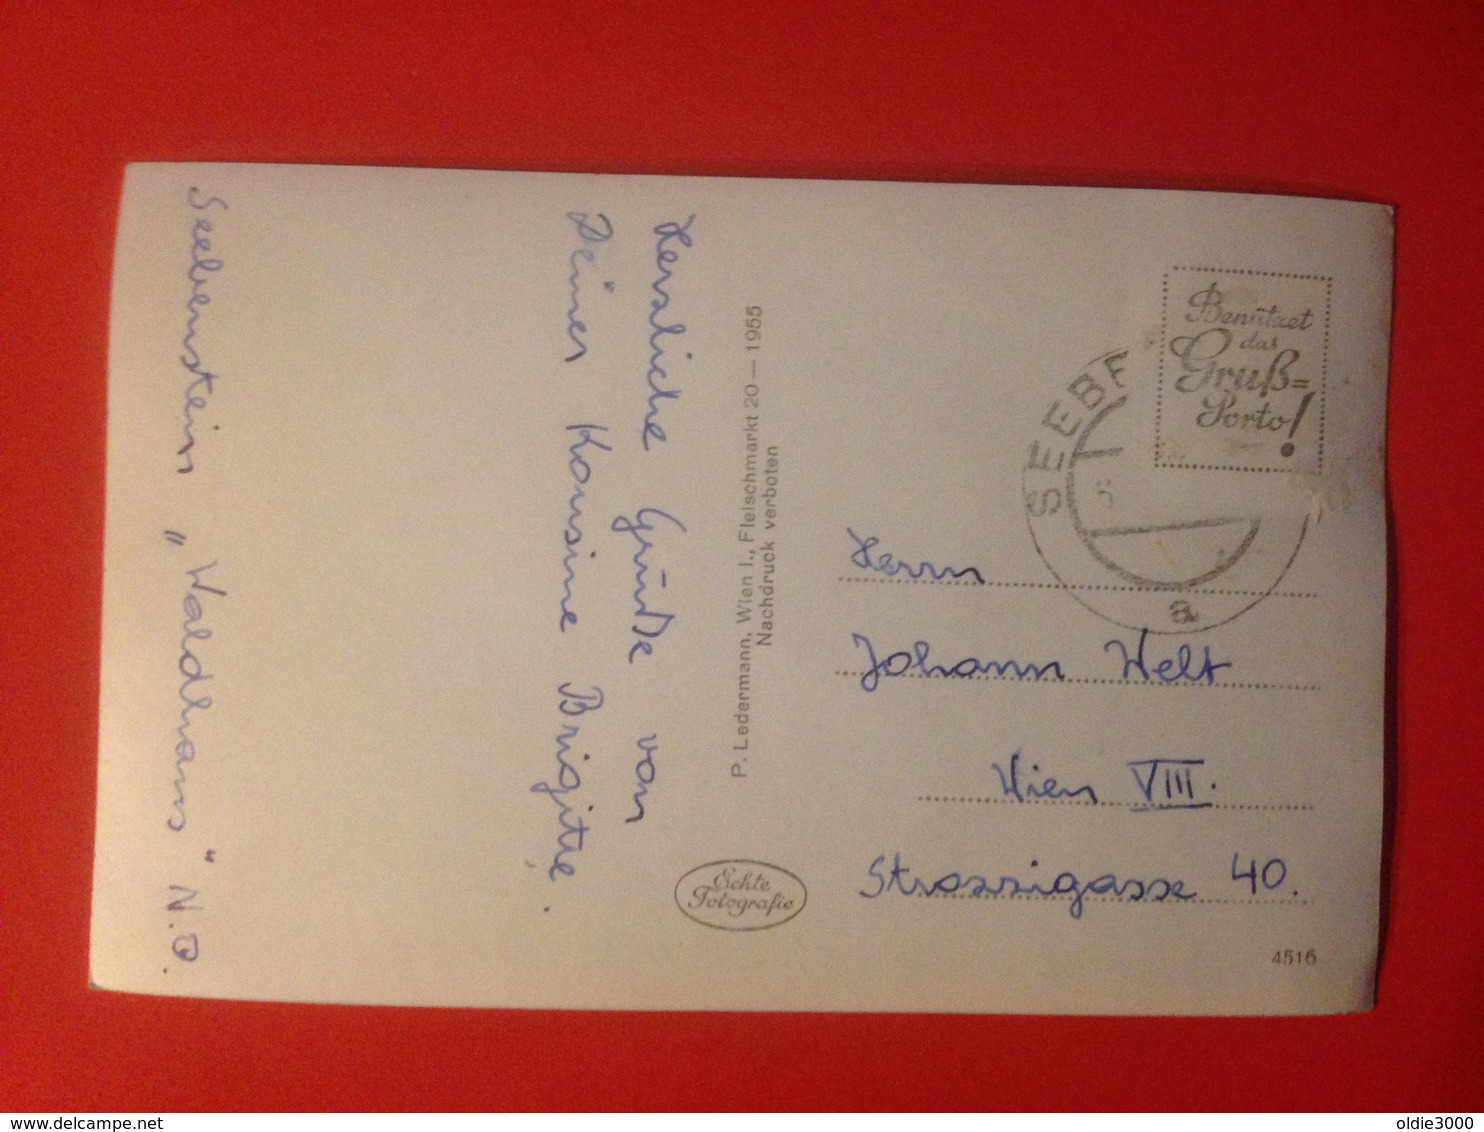 Seebenstein „Waldhaus" N.Ö.
Herzliche Grüße von
Deiner Kousine Brigitte.
P. Ledermann, Wien I., Fleischmarkt 20 — 1955
Nachdruck verboten
Echte
Fotografie
Benützet
das
Gruß=
Porto!
SEEB
a
Herrn
Johann Welt
Wien VIII.
Strozzigasse 40.
4516
delcampe.net
oldie3000